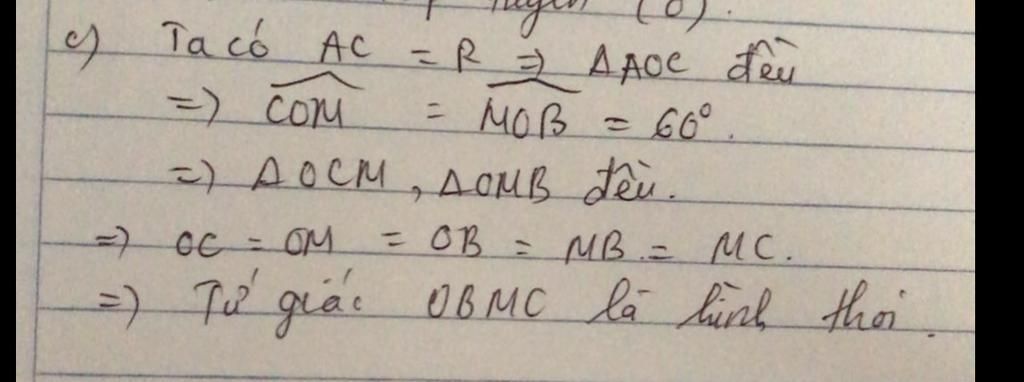 tuyến (O).
c) Ta có AC = R => ΔAOC đều
=> \widehat{COM} = \widehat{MOB} = 60°.
=> ΔOCM, ΔOMB đều.
=> OC = OM = OB = MB = MC.
=> Tứ giác OBMC là hình thoi.